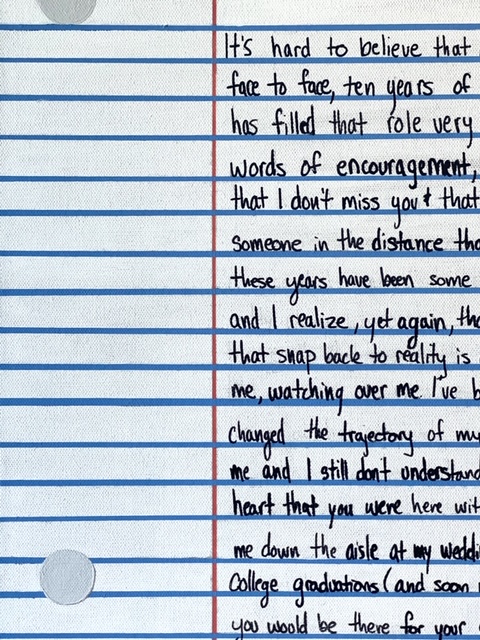 It's hard to believe that
face to face, ten years of
has filled that role very
words of encouragement,
that I don't miss you & that
someone in the distance
these years have been some
and I realize, yet again,
that snap back to reality is
me, watching over me. I've
changed the trajectory of my
me and I still don't understand
heart that you were here
me down the aisle at my
College graduations (and soon
you would be there for your